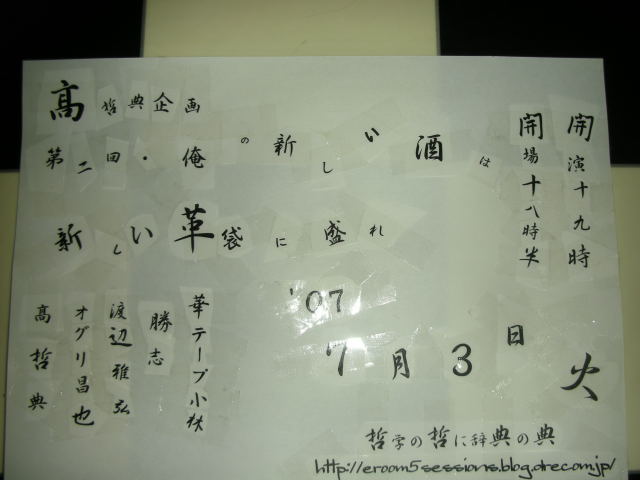 高哲典企画
第二回・俺の新しい酒は
新しい革袋に盛れ
開場十八時半
開演十九時
'07
7月3日火
華テープ小林
勝志
渡辺雅弘
オグリ昌也
高哲典
哲学の哲に辞典の典
http://eroom5sessions.blog.drecom.jp/